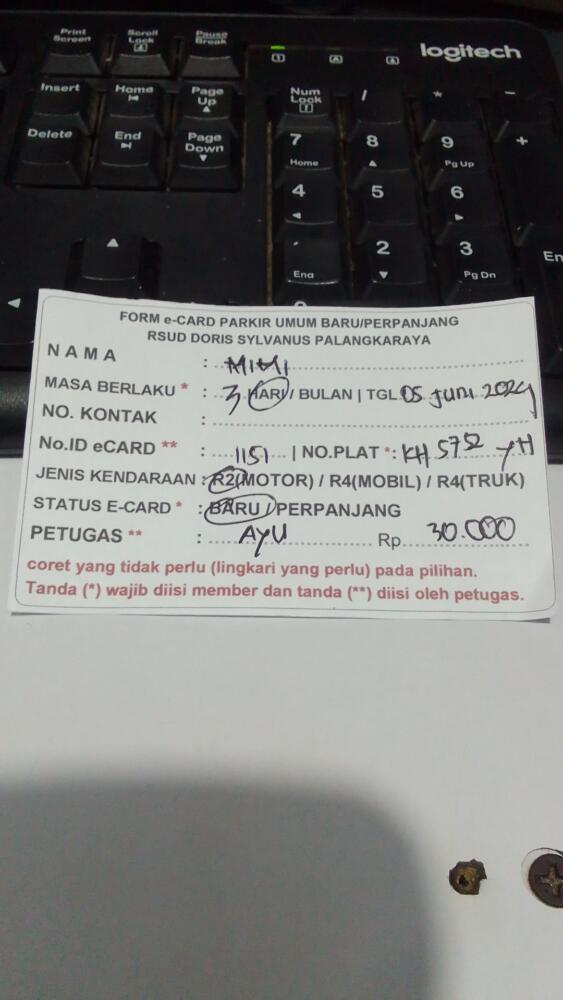 Print Screen
Scroll Lock
Pause Break
logitech
1
A
Insert
Home
Page Up
Num Lock
/
*
-
Delete
End
Page Down
7 Home
8
9 Pg Up
+
4
5
6
End
2
3 Pg Dn
En
FORM e-CARD PARKIR UMUM BARU/PERPANJANG
RSUD DORIS SYLVANUS PALANGKARAYA
NAMA : MIMI
MASA BERLAKU * : 3 HARI / BULAN | TGL 05 Juni 2024
NO. KONTAK :
No.ID eCARD ** : 1151 | NO.PLAT *: KH 5752 YH
JENIS KENDARAAN : R2(MOTOR) / R4(MOBIL) / R4(TRUK)
STATUS E-CARD * : BARU / PERPANJANG
PETUGAS ** : AYU Rp 30.000
coret yang tidak perlu (lingkari yang perlu) pada pilihan.
Tanda (*) wajib diisi member dan tanda (**) diisi oleh petugas.